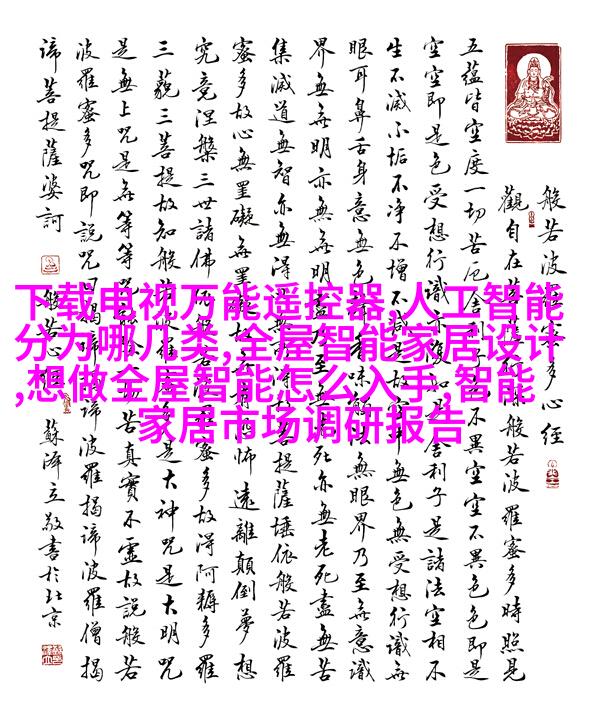 下载电视万能遥控器,人工智能
分为哪几类,全屋智能家居设计
,想做全屋智能怎么入手,智能
家居市场调研报告
般若波多心經
觀自在般若波羅蜜多時照見
五蘊皆空度一切苦厄舍利子不異空空不異色色即是
空空即是色受想行識亦如是舍利子是諸法空相不
生不滅不垢不净不增不故無色無受想行識無
眼耳鼻舌身意無味無眼界乃至無意識
界無無明亦無無明盡乃至無死亦無老死盡無苦
集滅道無智亦無得提薩埵依般若波羅
蜜多故心無罣礙無怖遠離顛倒夢想
究竟涅槃三世諸佛蜜多故得阿耨多羅
三藐三菩提故知般多是大神咒是大明咒
是無上咒是無等等咒苦真實不虛故說般若
波羅蜜多咒即說咒曰揭諦波羅揭諦波羅僧揭
諦菩提薩婆訶
般若心經
敬書於北京